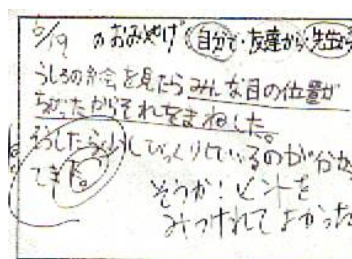 6/19 のおみやげ 自分で・友達から・先生から
うしろの絵を見たらみんな目の位置が
ちがったからそれをまねした。
そうしたら少しびっくりしているのが分かっ
てきた。
そうか!ヒントを
みつけれてよかった